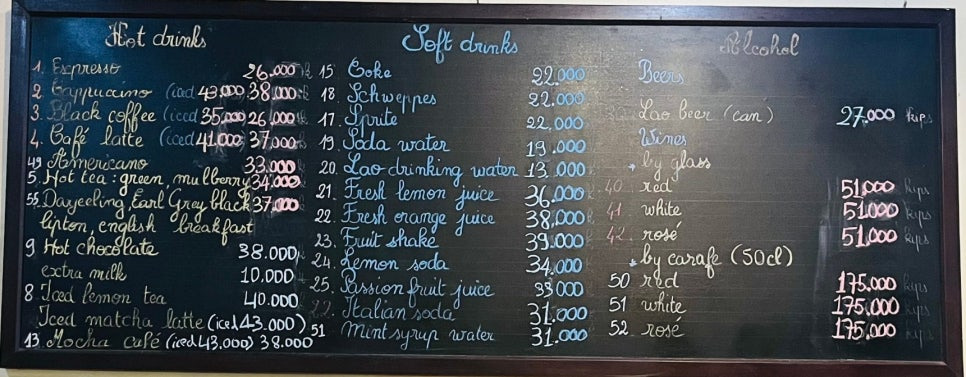 Hot drinks
1. Espresso 26.000
2 Cappuccino (iced 43.000 38.000
3. Black coffee (iced 35.000 26.000
4. Café latte (iced 41.000 37.000
49 Americano 33.000
5. Hot tea: green, mulberry 34.000
55 Darjeeling, Earl Grey, black 37.000
lipton, english breakfast
9 Hot chocolate 38.000
extra milk 10.000
8 Iced lemon tea 40.000
Iced matcha latte (iced 43.000)
13. Mocha café (iced 43.000) 38.000
Soft drinks
15 Coke 22.000
18. Schweppes 22.000
17. Sprite 22,000
19. Soda water 19.000
20. Lao drinking water 13.000
21. Fresh lemon juice 36.000
22. Fresh orange juice 38.000
23. Fruit shake 39.000
24. Lemon soda 34.000
25. Passion fruit juice 39.000
22. Italian soda 31.000
51 Mint syrup water 31.000
Alcohol
Beers
Lao beer (can) 27.000 kips
Wines
* by glass
40 red 51.000 kips
41 white 51.000 kips
42. rosé 51.000 kips
* by carafe (50cl)
50 red 175.000 kips
51 white 175.000 kips
52. rosé 175.000 kips